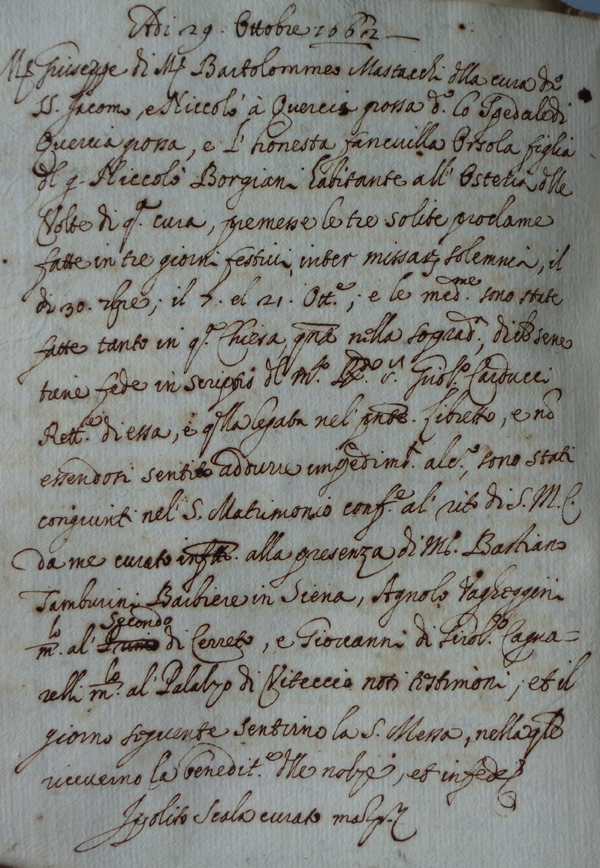 Adi 29. Ottobre 1662
Mº Giuseppe di Mº Bartolommeo Mastacchi dlla cura di
SS. Jacomo, e Niccolò à Quercia grossa dº lo Spedale di
Quercia grossa, e l'honesta fanciulla Orsola figlia
dl q. Niccolò Borgiani habitante all'Osteria dlle
Volte di qª cura, premesse le tre solite proclame
fatte in tre giorni festivi inter missarz solemnia, il
di 30. 7bre; il 7. el 21. Ottᵉ, e le medᵐᵉ sono state
fatte tanto in qª Chiesa, qntº nella sopradª, di che sene
tiene fede in scriptis dl mº Rdº Sʳ Girolº Carducci
Rettʳᵉ di essa, e qlla legata nel pnte libreto, e nō
essendosi sentito addurre impedimº alcº, sono stati
congiunti nel S. Matrimonio confᵉ al rito di S. M. C
da me curato infrᵗᵒ alla presenza di Mº Bastiano
Tamburini Barbiere in Siena, Agnolo Vagheggini
mºlº al Primo Secondo di Cerreto, e Giovanni di Girolº Cagna=
relli mºlº al Palazzo di Viteccio noti testimoni; et il
giorno seguente sentirno la S. Messa, nella qle
riceverno la benedittᵉ dlle nozze, et in fede
Ippolito Scala curato